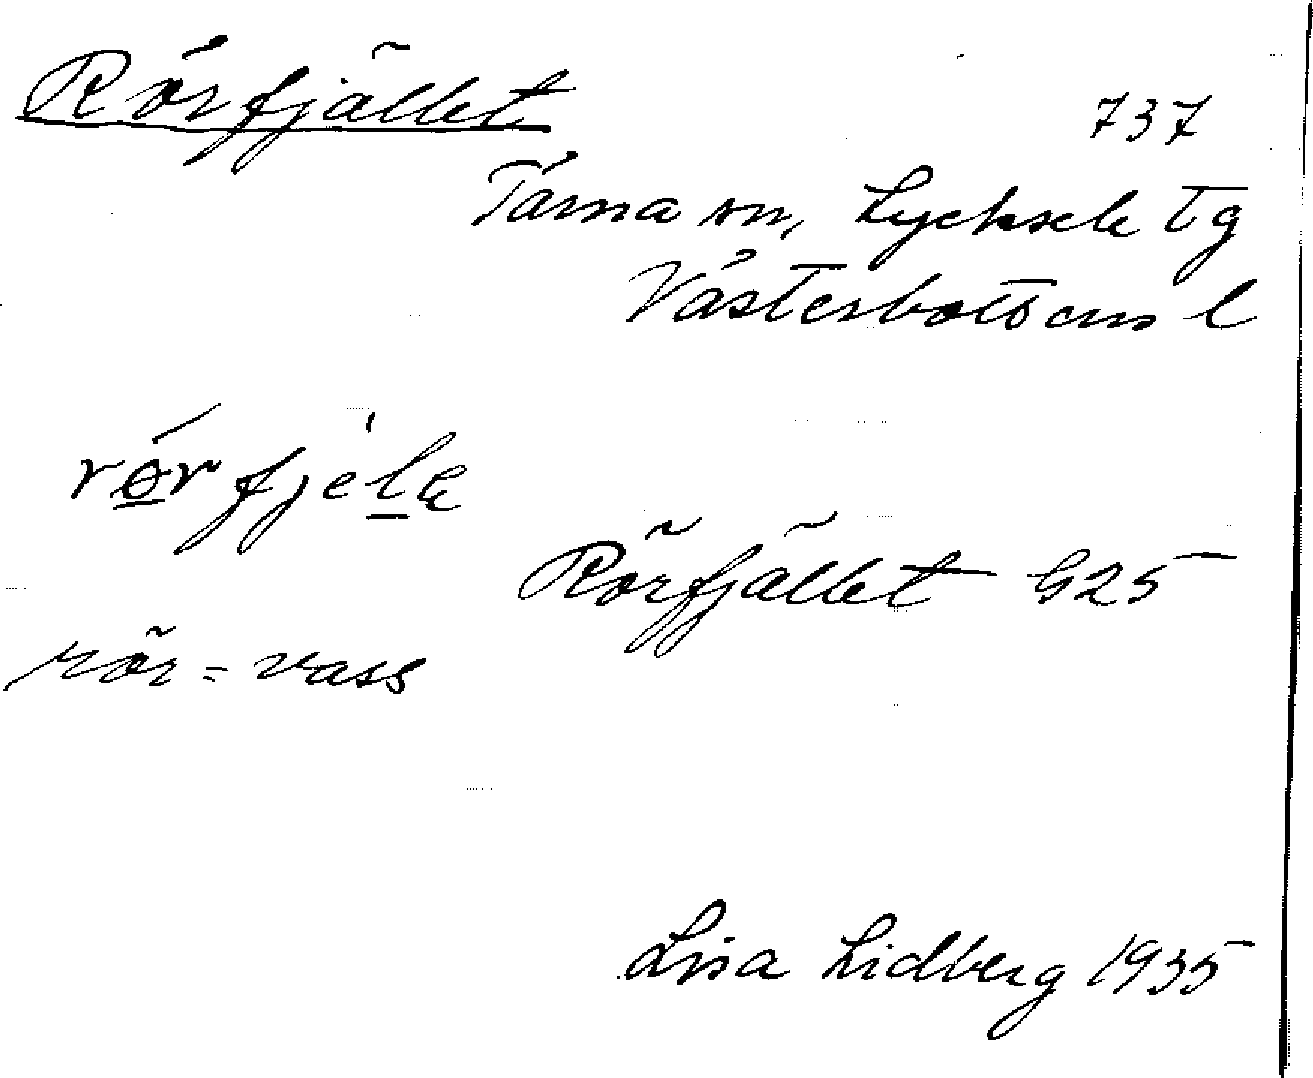 Rörfjället
737
Tärna sn, Lycksele tg
Västerbottens l
rör fjélle
Rörfjället G25
rör = vass
Lisa Lidberg 1935